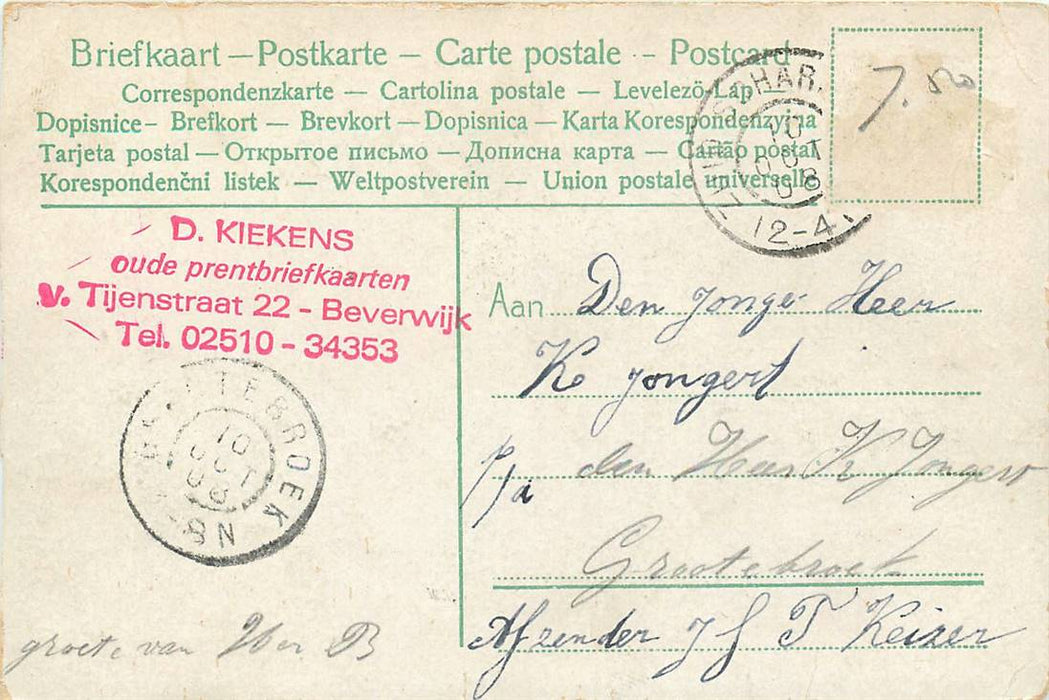 Briefkaart — Postkarte — Carte postale - - Postcard
Correspondenzkarte — Cartolina postale — Levelezö-Lap
Dopisnice– Brefkort — Brevkort — Dopisnica — Karta Korespondenzyjna
Tarjeta postal — Открытое письмо — Дописна карта — Cartão postal
Korespondenčni listek — Weltpostverein — Union postale universelle
7.50
10
OCT
08
12-4
D. KIEKENS
oude prentbriefkaarten
v. Tijenstraat 22 - Beverwijk
Tel. 02510 - 34353
Aan Den jonger Heer
Ko jongert
p/a den Heer K Jongert
Grootebroek
Afzender J G T Keizer
TEBROEK
10
OCT
08
8-N
groete van